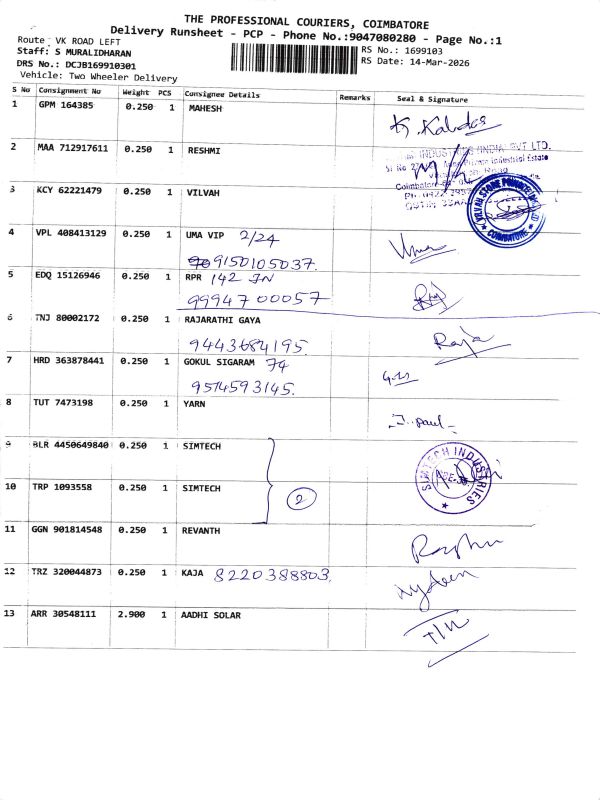 THE PROFESSIONAL COURIERS, COIMBATORE
Delivery Runsheet - PCP - Phone No.:9047080280 - Page No.:1
Route : VK ROAD LEFT
Staff: S MURALIDHARAN
RS No.: 1699103
DRS No.: DCJB169910301
RS Date: 14-Mar-2026
Vehicle: Two Wheeler Delivery
S No Consignment No Weight PCS Consignee Details Remarks Seal & Signature
1 GPM 164385 0.250 1 MAHESH
2 MAA 712917611 0.250 1 RESHMI
INDUSTRIES (INDIA) PVT LTD.
Industrial Estate
Coimbatore
3 KCY 62221479 0.250 1 VILVAH
VILVAH STORE PRIVATE
COIMBATORE
4 VPL 408413129 0.250 1 UMA VIP 2/24
9150105037. Uma
5 EDQ 15126946 0.250 1 RPR 142 IN
99947 00057
6 TNJ 80002172 0.250 1 RAJARATHI GAYA
9443684195. Raja
7 HRD 363878441 0.250 1 GOKUL SIGARAM 74
9514593145.
8 TUT 7473198 0.250 1 YARN
J. paul
9 BLR 4450649840 0.250 1 SIMTECH
SIMTECH INDUSTRIES
10 TRP 1093558 0.250 1 SIMTECH
2
11 GGN 901814548 0.250 1 REVANTH
12 TRZ 320044873 0.250 1 KAJA 8220388803.
13 ARR 30548111 2.900 1 AADHI SOLAR